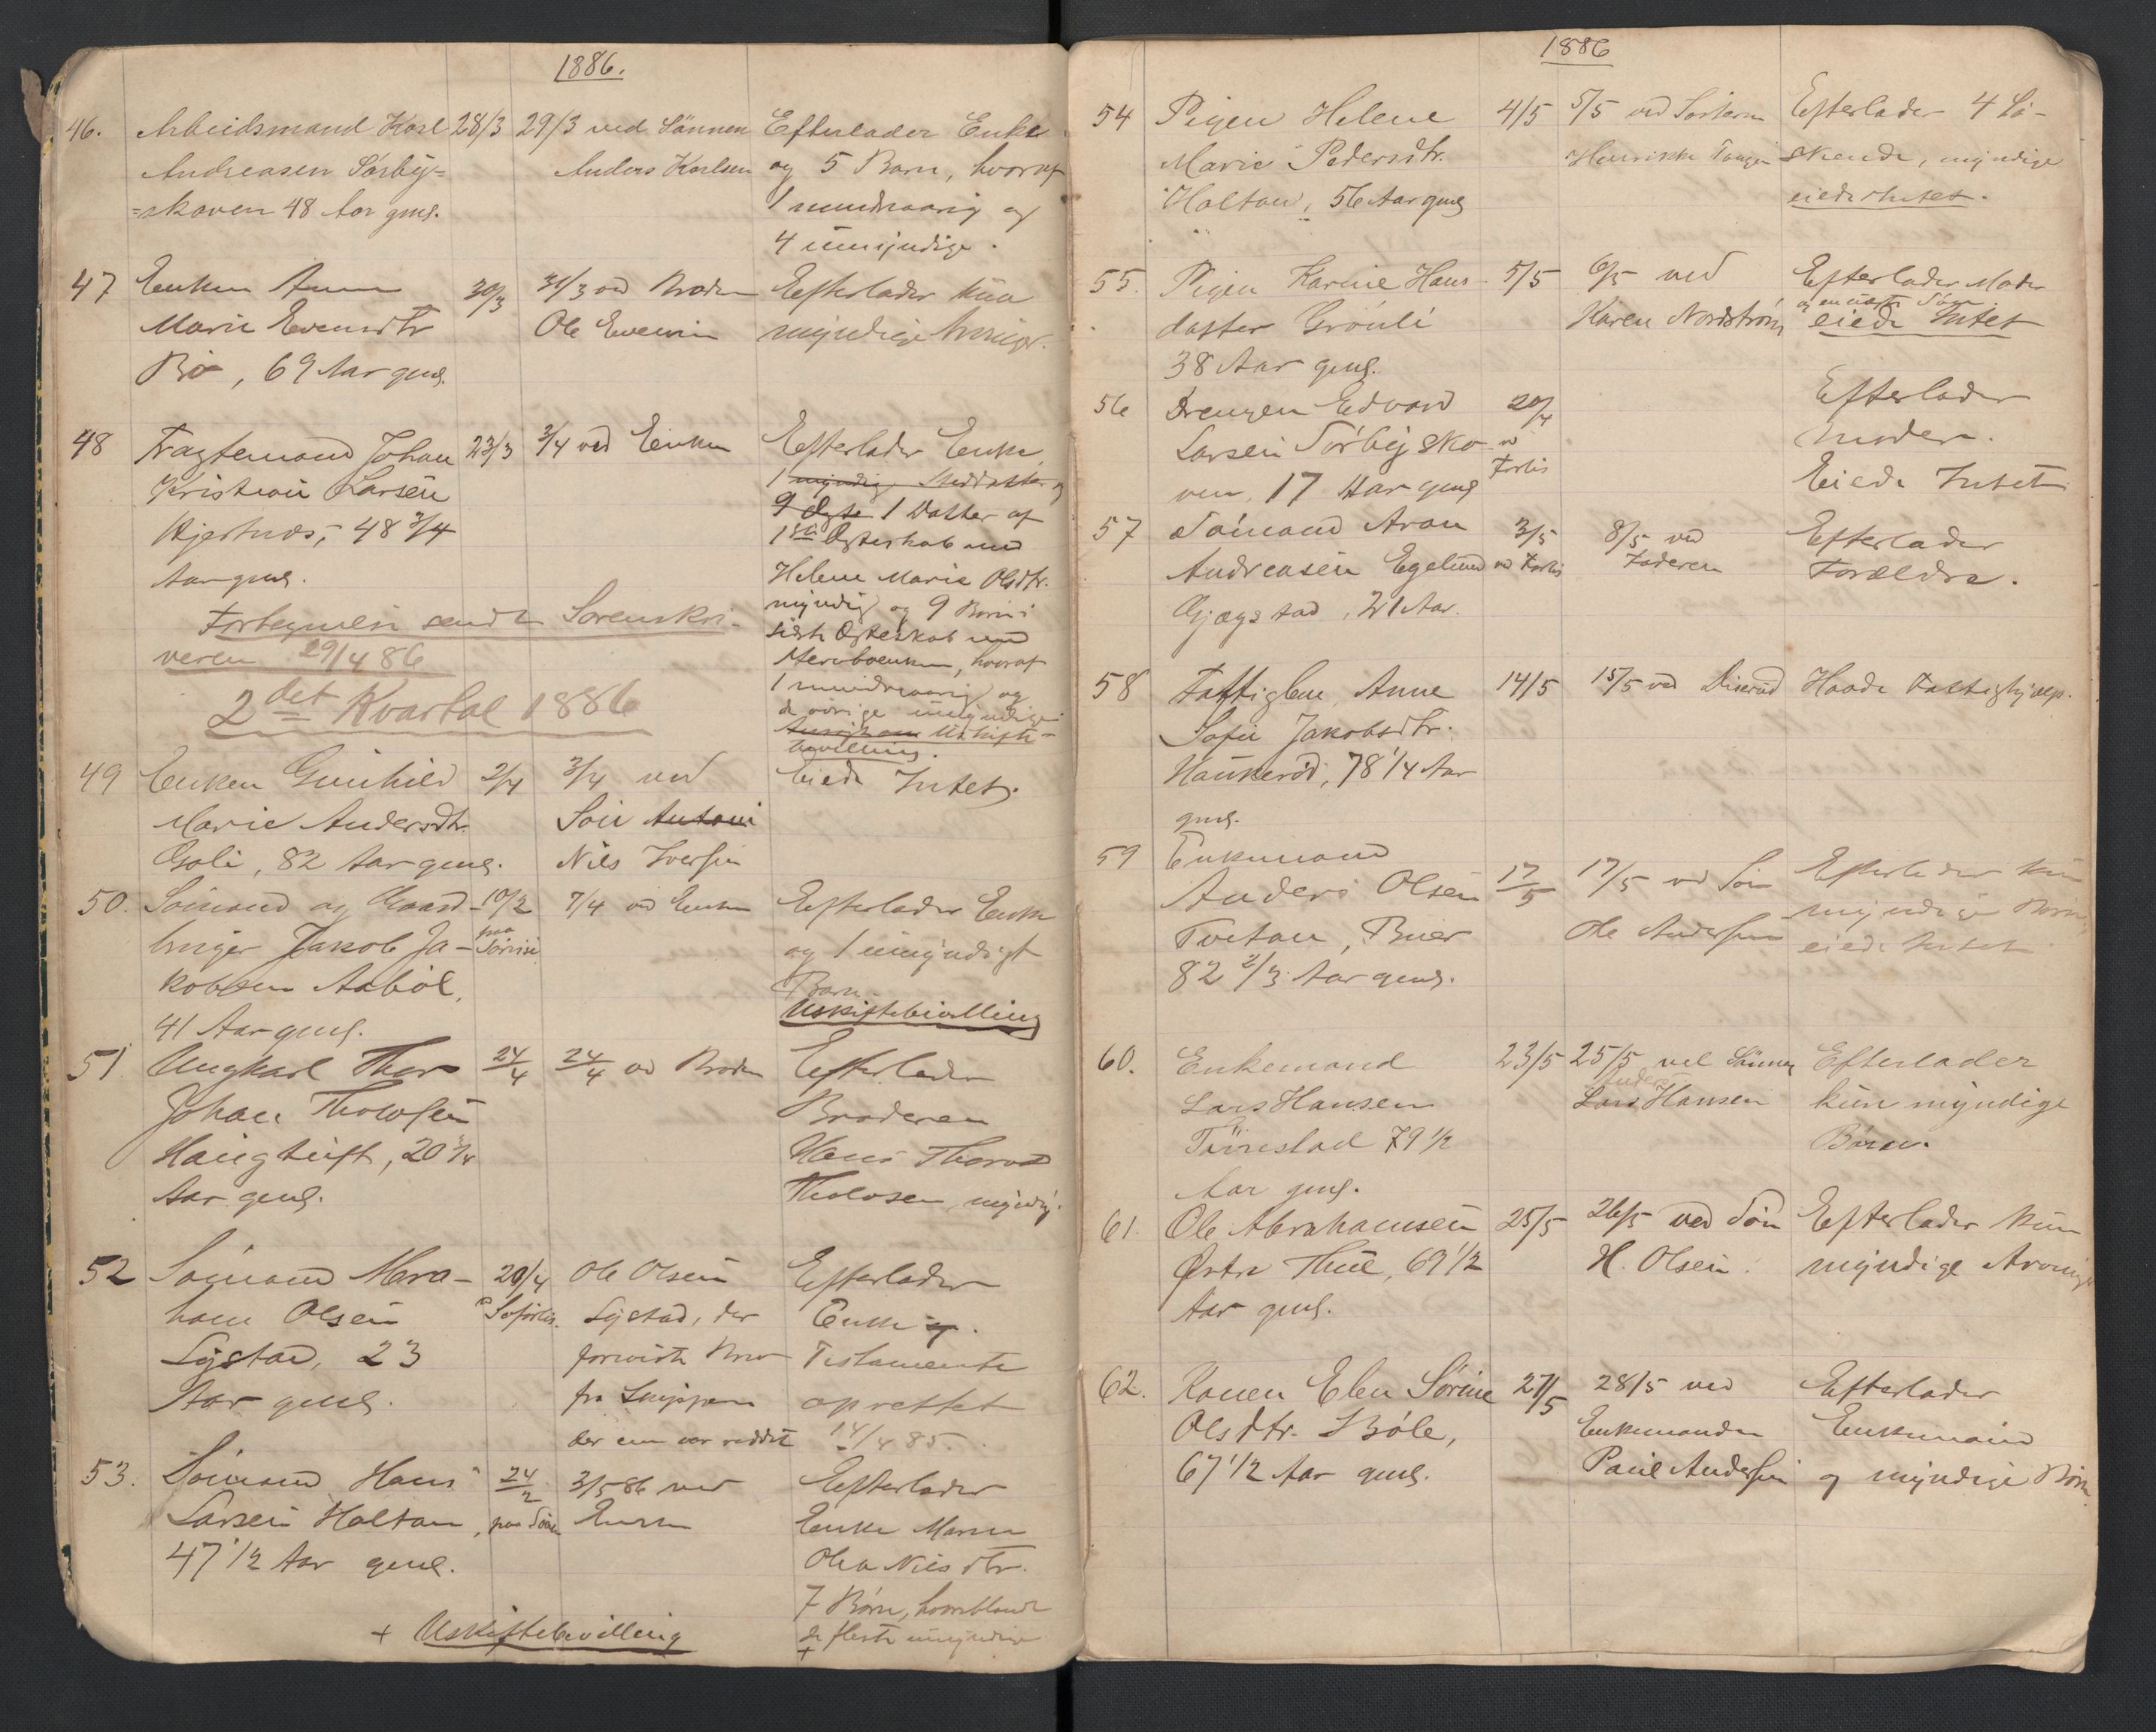 1886.
46. Arbeidsmand Karl 28/3 29/3 ved Sönnen Efterlader Enke
Andreasen Sörby= Anders Karlsen og 5 Barn, hvoraf
=skoven 48 Aar gml. 1 mindreaarig og
4 umyndige.
47 Enken Anne 30/3 31/3 ved Broder Efterlader kun
Marie Evensdtr Ole Evensen myndige Arvinger.
Bö, 69 Aar gml.
48 Fragtemand Johan 23/3 3/4 ved Enken Efterlader Enke,
Kristian Larsen 1 myndig Steddatter og
Kjertnæs, 48 3/4 9 Ægte 1 Datter af
Aar gml. 1ste Ægteskab med
Helene Marie Olsdtr.
myndig og 9 Børn i
sidste Ægteskab med
Stervboenken, hvoraf
1 mindreaarig og
de øvrige umyndige.
Uskifte-
bevilling.
Fortegnelsen sendt Sorenskri-
veren 29/4 86
2det Kvartal 1886
49 Enken Gunhild 2/4 3/4 ved Eiede Intet.
Marie Andersdtr. Sön Antoni
Goli, 82 Aar gml. Nils Iversen
50. Sömand og Gaard- 10/2 7/4 ved Enken Efterlader Enke
bruger Jakob Ja- paa Söreise og 1 umyndigt
kobsen Aaböl, Barn.
41 Aar gml. Uskiftebevilling
51. Ungkarl Thor 24/4 24/4 ved Broder Efterlader
Johan Tholfsen Broderen
Haugtuft, 20 3/4 Hans Thorvald
Aar gml. Tholosen, myndig.
52 Sömand Abra- 20/4 Ole Olsen Efterlader
ham Olsen Soforlis. Lystad, der Enke og.
Lystad, 23 forviste Brev Testamente
Aar gml. fra Skipperen oprettet
der ene var reddet 14/4 85.
53. Sömand Hans 24/2 3/5 86 ved Efterlader
Larsen Holtan, paa Söen Enken Enke Maren
47 1/2 Aar gml. Olea Nilsdtr.
7 Børn, hvoriblandt
de fleste umyndige
+ Uskiftebevilling +
1886
54 Pigen Helene 4/5 5/5 ved Søsteren Efterlader 4 Sö-
Marie Pedersdtr. Henrikke Tangen skende, myndige
Holtan, 56 Aar gml eiede Intet.
55. Pigen Karine Hans- 5/5 6/5 ved Efterlader Moder
datter Grönli Karen Nordström og en uægte Sön
eiede Intet
38 Aar gml.
56 Drengen Edvard 20/4 Efterlader
Larsen Sörbysko- ved Moder.
ven, 17 Aar gml Forlis Eiede Intet
57 Sömand Aron 3/5 8/5 ved Efterlader
Andreasen Egelund ved Forlis Faderen Forældre.
Gjøgstad, 21 Aar.
58 Fattiglem, Anne 14/5 15/5 ved Diserud Havde Fattighjælp.
Sofie Jakobsdtr.
Haukeröd, 78 1/4 Aar
gml.
59 Enkemand
Anders Olsen 17/5 17/5 ved Sön Efterlader kun
Tvetan, Buer Ole Andersen myndige Børn,
82 2/3 Aar gml. eiede Intet
60. Enkemand 23/5 25/5 ved Sönnen Efterlader
Lars Hansen Anders
Lars Hansen kun myndige
Tönnestad 79 1/2 Börn.
Aar gml.
61. Ole Abrahamsen 25/5 26/5 ved Sön Efterlader kun
Østre Thue, 69 1/2 H. Olsen. myndige Arvinger
Aar gml.
62. Konen Elen Sörine 27/5 28/5 ved Efterlader
Olsdtr. Böle, Enkemanden Enkemand
67 1/2 Aar gml. Paul Andersen og myndige Børn.